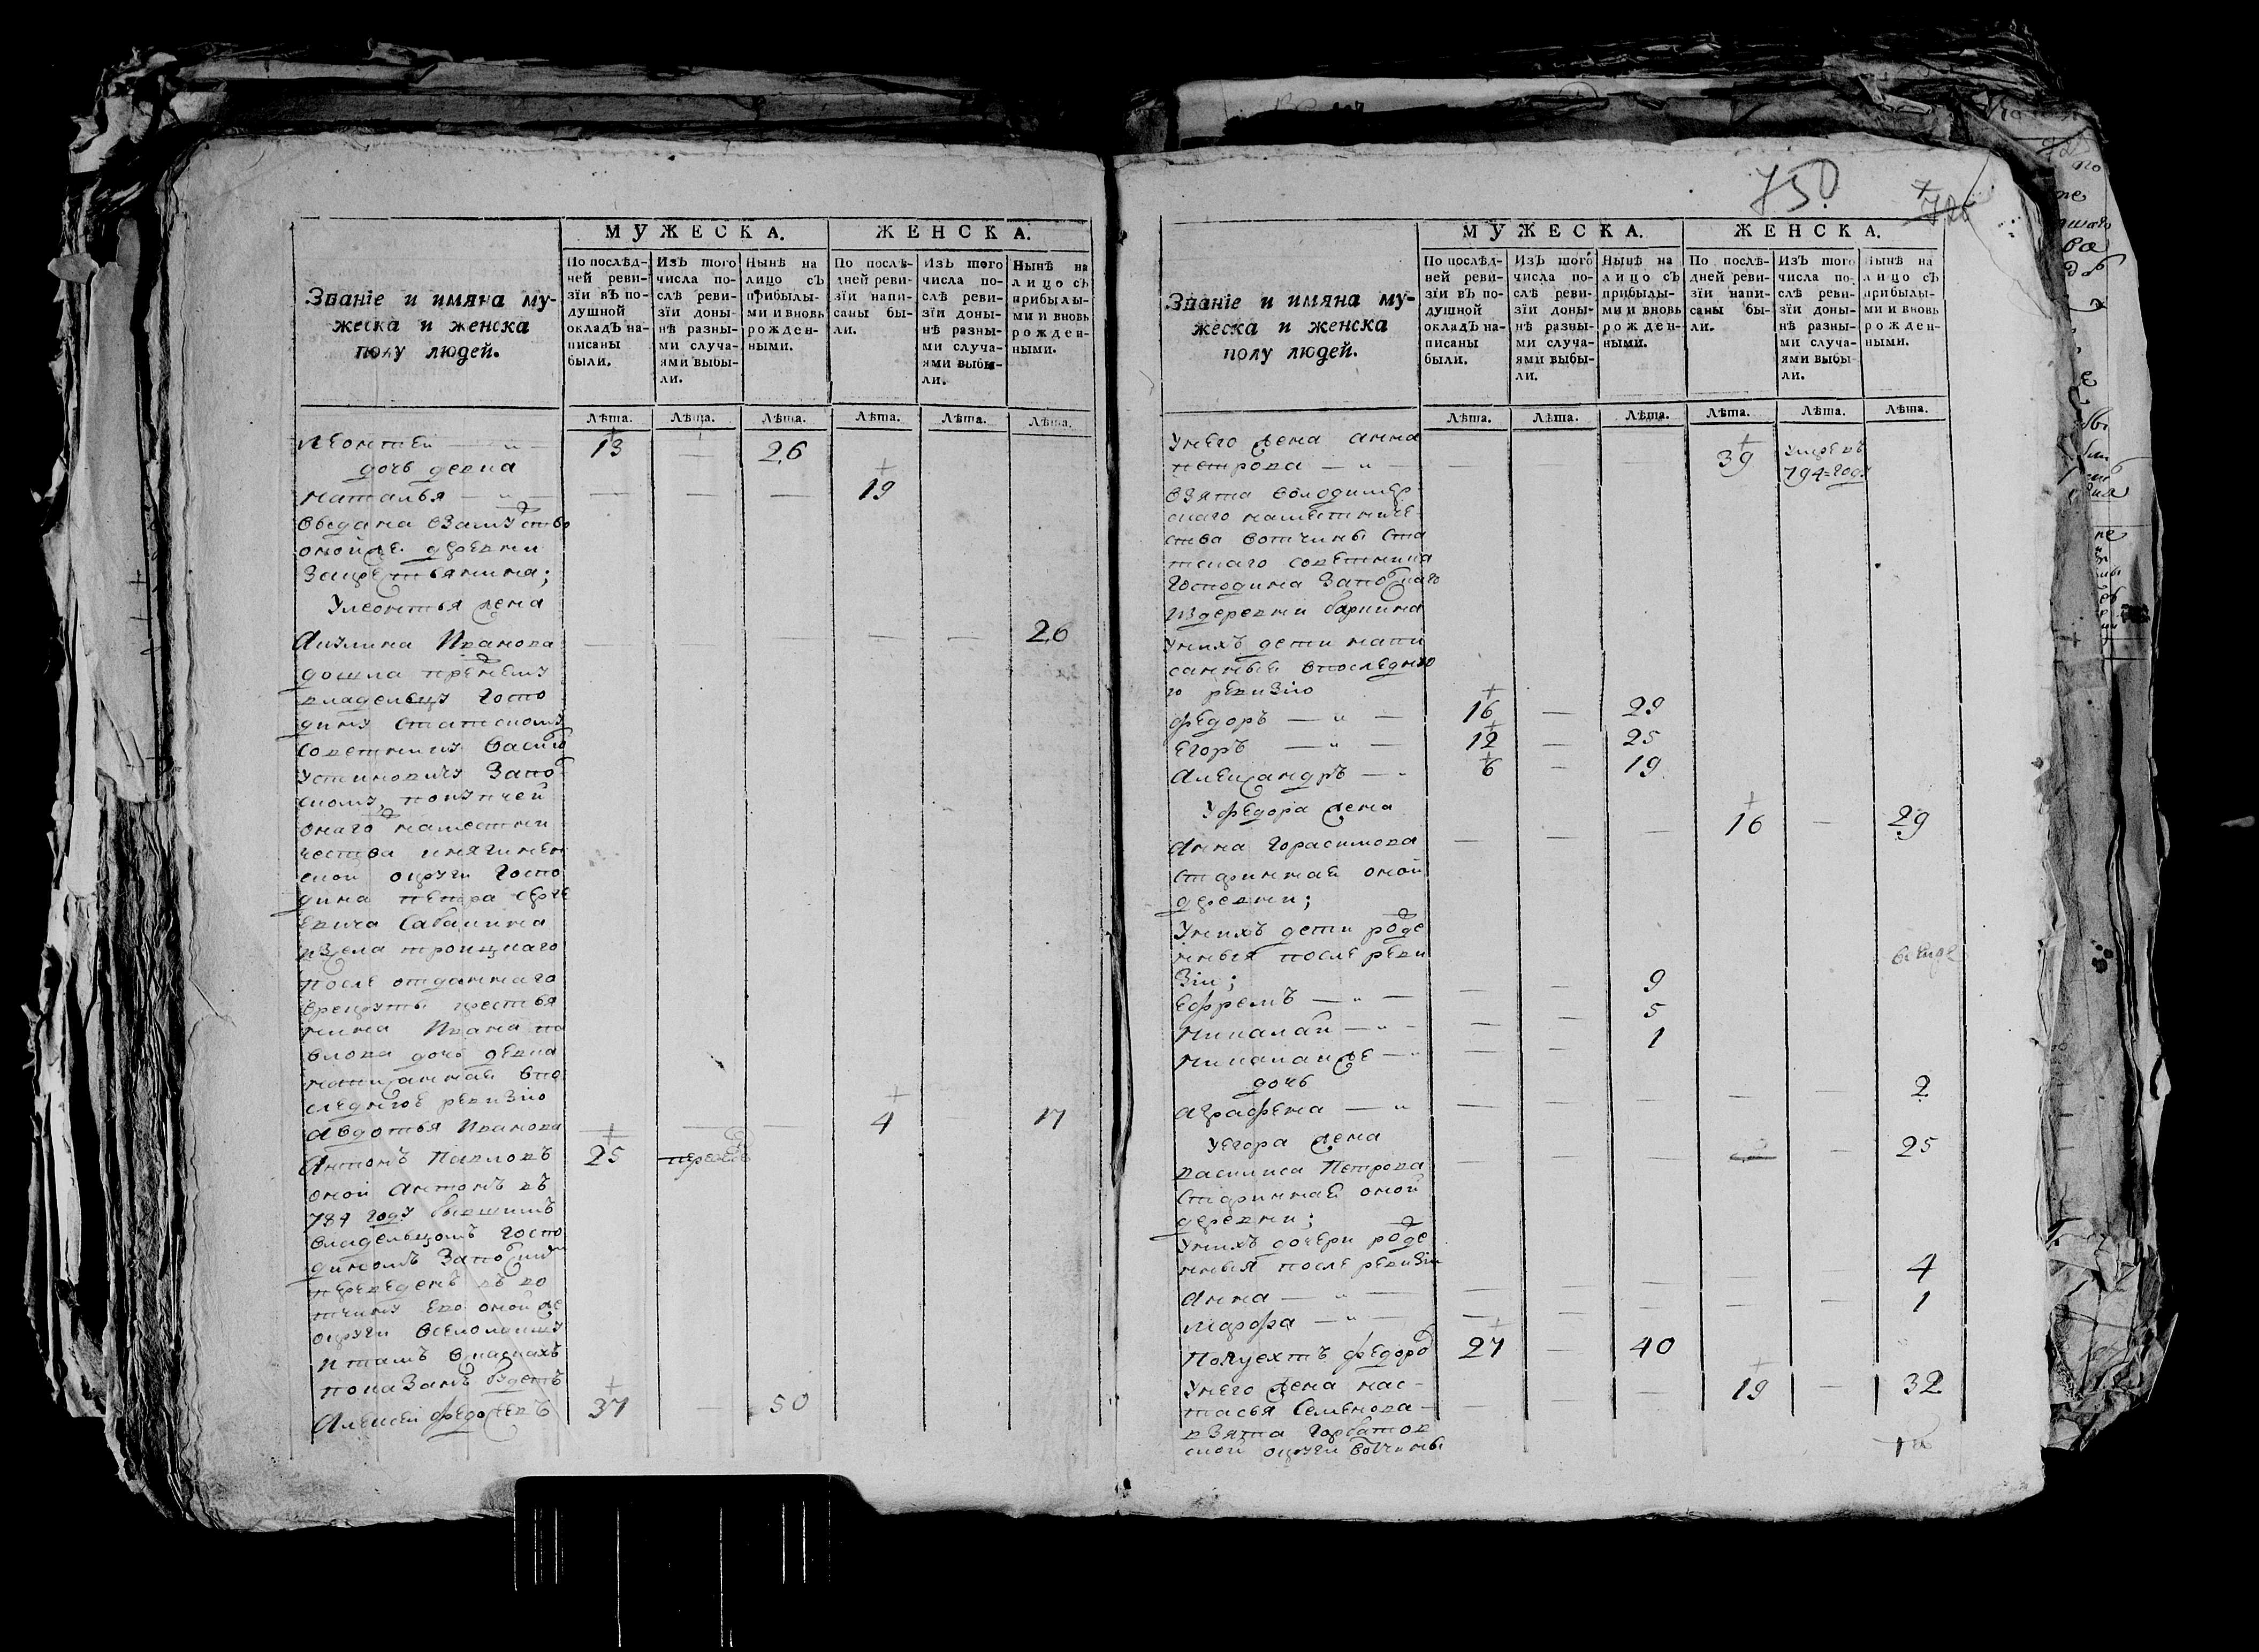 МУЖЕСКА.
ЖЕНСКА.
Званіе и имяна му-
жеска и женска
полу людей.
По послѣд-
ней реви-
зіи въ по-
душной
окладъ на-
писаны
были.
Изъ того
числа по-
слѣ реви-
зіи доны-
нѣ разны-
ми случа-
ями выбы-
ли.
Нынѣ на
лицо съ
прибылы-
ми и вновь
рожден-
ными.
По послѣ-
дней реви-
зіи напи-
саны бы-
ли.
Изъ того
числа по-
слѣ реви-
зіи доны-
нѣ разны-
ми случа-
ями выбы-
ли.
Нынѣ на
лицо съ
прибылы-
ми и вновь
рожден-
ными.
Лѣта. Лѣта. Лѣта. Лѣта. Лѣта. Лѣта.
леонтей — 13 — 26
дочь девка
наталья — — — — 19
выдана взамужство
оной же деревни
закрестьянина;
Улеонтья жена
Акулина Иванова — — — — — 26
дошла прежнему
владельцу госпо
дину статскому
советнику василю
устиновичу
покупкей
онаго наместни
чества княгинен
ской округи госпо
дина петра серге
евича Сабакина
изсела троицкаго
после отданнаго
врекруты крестья
нина Ивана па
влова дочь девка
написанная впо
следнюю ревизию
Авдотья Иванова — — 4 17
Антонъ Павловъ 25
оной Антонъ въ
784 году бывшимъ
владельцомъ госпо
диномъ
переведенъ въ во
тчину ево оной же
округи
и тамъ всказкахъ
показанъ будетъ
Алексей федосеевъ 37 — 50
750
МУЖЕСКА.
ЖЕНСКА.
Званіе и имяна му-
жеска и женска
полу людей.
По послѣд-
ней реви-
зіи въ по-
душной
окладъ на-
писаны
были.
Изъ того
числа по-
слѣ реви-
зіи доны-
нѣ разны-
ми случа-
ями выбы-
ли.
Нынѣ на
лицо съ
прибылы-
ми и вновь
рожден-
ными.
По послѣ-
дней реви-
зіи напи-
саны бы-
ли.
Изъ того
числа по-
слѣ реви-
зіи доны-
нѣ разны-
ми случа-
ями выбы-
ли.
Нынѣ на
лицо съ
прибылы-
ми и вновь
рожден-
ными.
Лѣта. Лѣта. Лѣта. Лѣта. Лѣта. Лѣта.
Унего жена анна
петрова — — — — 39 умре въ 794=году
взята володимер
скаго наместниче
ства вотчины ста
тскаго советника
господина
издеревни
Унихъ дети напи
санные впоследню
ю ревизию
федоръ — 16 — 29
Егоръ — 12 — 25
Александръ — 6 — 19
Уфедора жена
Анна Горасимова — — — 16 — 29
старинная оной
деревни;
Унихъ дети рожде
нныя после реви
зіи;
Ефремъ — — — 9
Николай — — — 5
Николай же — — — 1
дочь
аграфена — — — — — — 2
Уегора жена
василиса Петрова — — — — 25
старинная оной
деревни;
Унихъ дочери рожде
нныя после ревизіи
Анна — — — — — — 4
Марфа — — — — — — 1
Полуехтъ федоро 27 — 40
Унего жена нас-
тасья Семенова — — — — 19 — 32
взята горбатов
ской округи вотчины